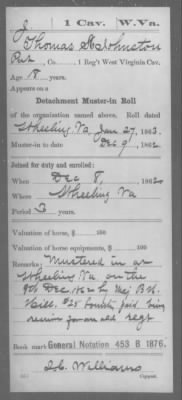 J. 1 Cav. W.Va.
Thomas S Johnston
Pvt, Co. 1 Reg't West Virginia Cav.
Age 18 years.
Appears on a
Detachment Muster-in Roll
of the organization named above. Roll dated
Wheeling Va Jan 27, 1863.
Muster-in to date Dec 9, 1862
Joined for duty and enrolled:
When Dec 8, 1862
Where Wheeling Va
Period 3 years.
Valuation of horse, $ 100
Valuation of horse equipments, $ 100
Remarks: Mustered in at
Wheeling Va on the
9th Dec, 1862 by Maj B.H.
Hill. $25 bounty paid, being
for an old regt
Book mark General Notation 453 B 1876.
Williams
Copyist.